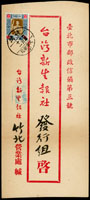 臺北市郵政信箱第三號
台灣新生報社 發行組 啓
台灣新生報社
竹北營業處 緘